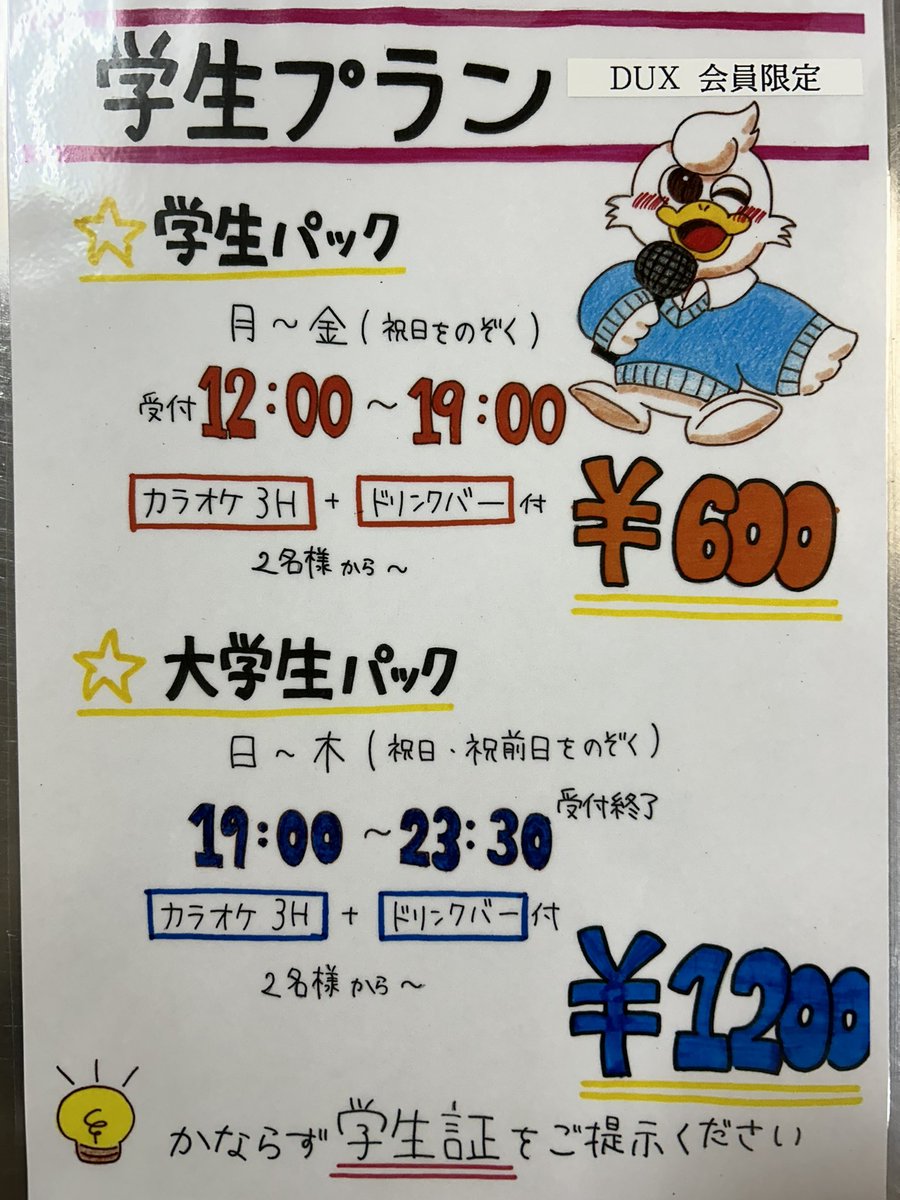 学生プラン DUX 会員限定
☆学生パック
月～金(祝日をのぞく)
受付 12:00～19:00
カラオケ 3H + ドリンクバー付
¥600
2名様から～
☆大学生パック
日～木(祝日・祝前日をのぞく)
19:00～23:30 受付終了
カラオケ 3H + ドリンクバー付
2名様から～
¥1200
かならず学生証をご提示ください